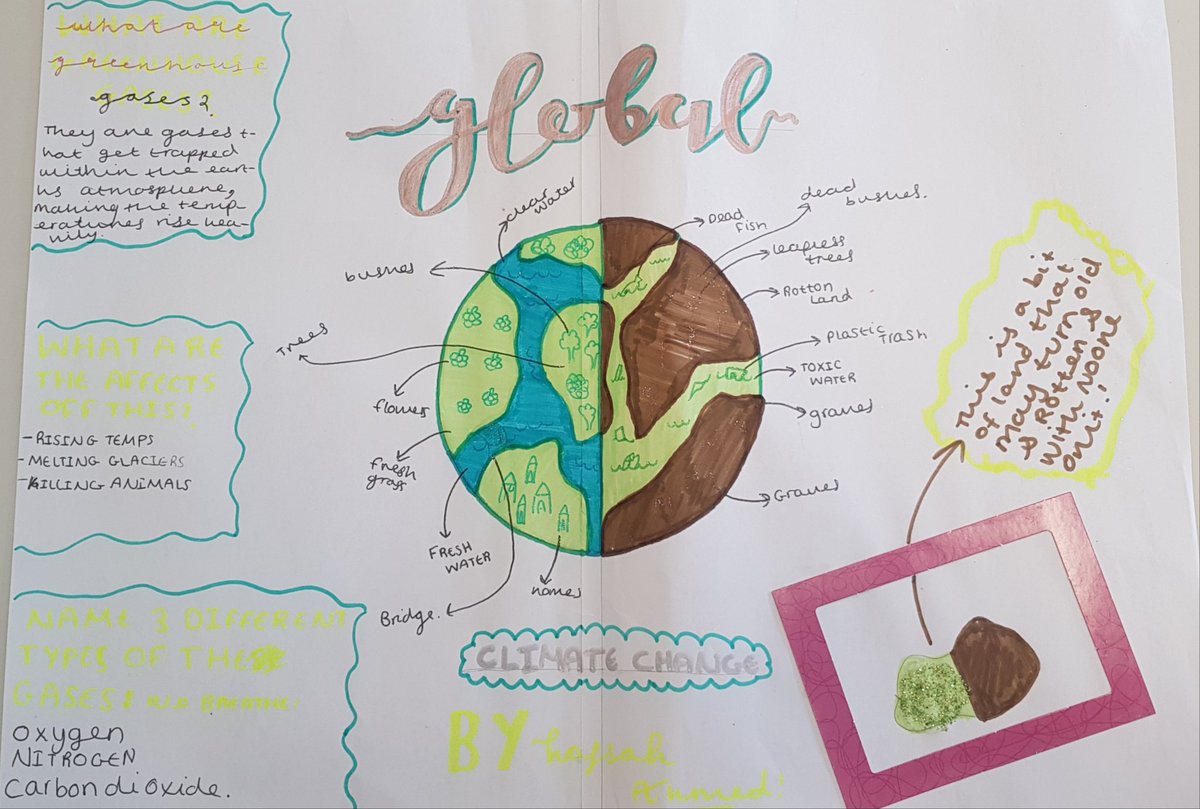 what are
greenhouse
gases?
They are gases t-
hat get trapped
within the ear-
hs atmosphere,
making the temp
eratures rise hea-
vily.
global
clear
water
bushes
Trees
flower
fresh
grass
FRESH
WATER
Bridge.
homes
Dead
Fish
dead
bushes.
leafless
trees
Rotton
Land
Plastic
trash
TOXIC
WATER
graves
Graves
WHAT ARE
THE AFFECTS
OFF THIS?
-RISING TEMPS
-MELTING GLACIERS
-KILLING ANIMALS
NAME 3 DIFFERENT
TYPES OF THESE
GASES!
Oxygen
NITROGEN
Carbon dioxide.
CLIMATE CHANGE
BY hafsah
Ahmed!
This is a bit
of land that
May turn old
& Rotten &
with Noone
on it!